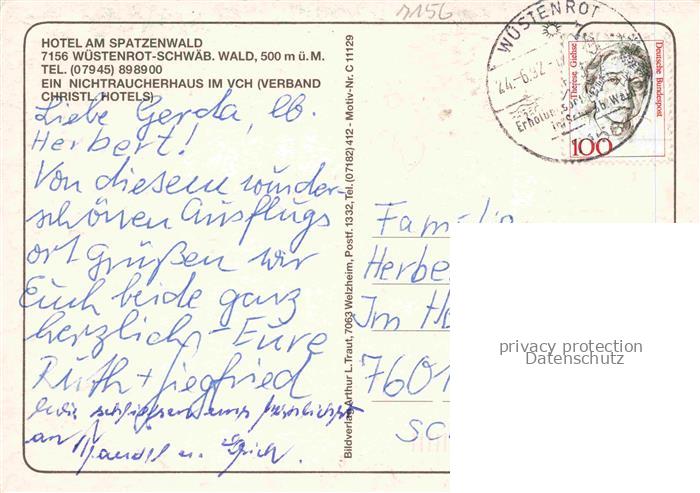 7156
HOTEL AM SPATZENWALD
7156 WÜSTENROT-SCHWÄB. WALD, 500 m ü. M.
TEL. (07945) 898900
EIN NICHTRAUCHERHAUS IM VCH (VERBAND
CHRISTL. HOTELS)
Liebe Gerda, lb.
Herbert!
Von diesem wunder-
schönen Ausflugs
ort grüßen wir
Euch beide ganz
herzlich - Eure
Ruth + Siegfried
wir schliessen uns herzlichst
an
u.
Bildverlag Arthur L. Traut, 7063 Welzheim, Postf. 1332, Tel. (07182) 412 - Motiv-Nr. C 11129
WÜSTENROT
24.-6.92
7156
Therese Giehse
Deutsche Bundespost
100
Familie
Herbe
Im He
7601
sc
privacy protection
Datenschutz